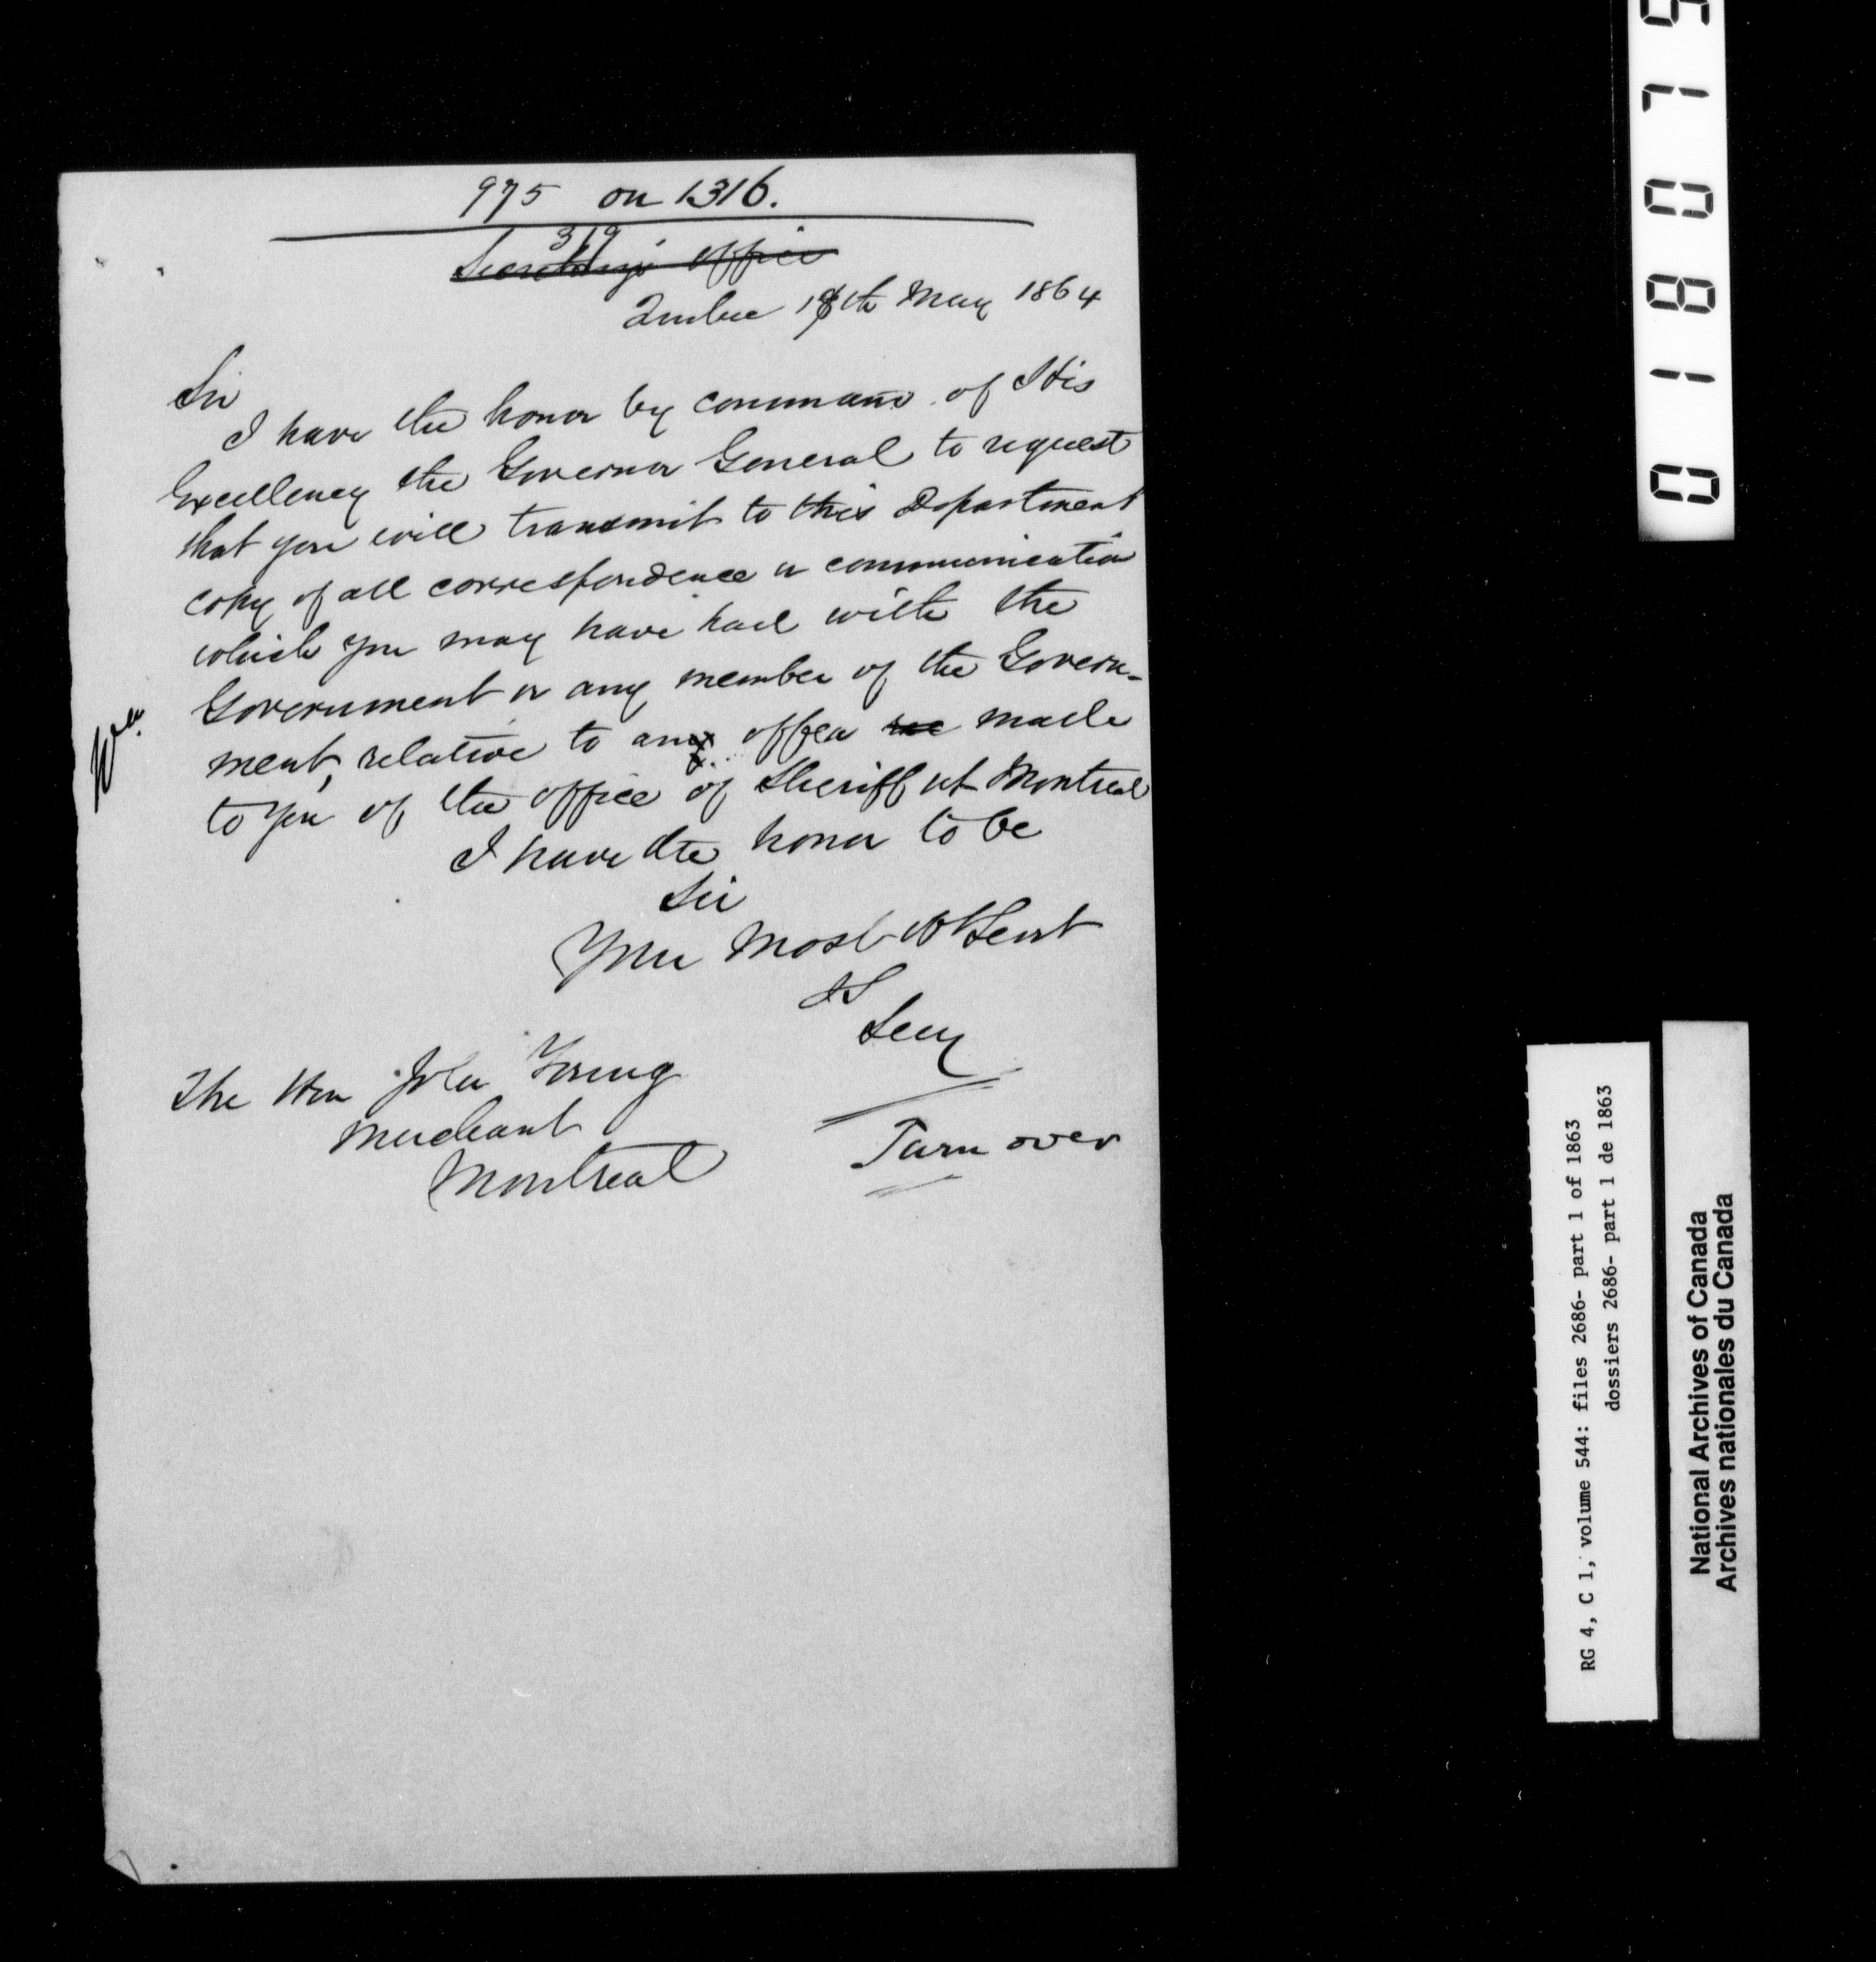 975 on 1316.
319
Secretary's Office
Quebec 18th May 1864
Sir
I have the honor by command of His
Excellency the Governor General to request
that you will transmit to this Department
copy of all correspondence or communication
which you may have had with the
Government or any member of the Govern-
ment, relative to any offer made
to you of the office of Sheriff at Montreal
I have the honor to be
Sir
Your Most Obt Servt
Secy
The Hon John Young
Merchant
Montreal
Turn over
018075
RG 4, C 1, volume 544: files 2686- part 1 of 1863
dossiers 2686- part 1 de 1863
National Archives of Canada
Archives nationales du Canada